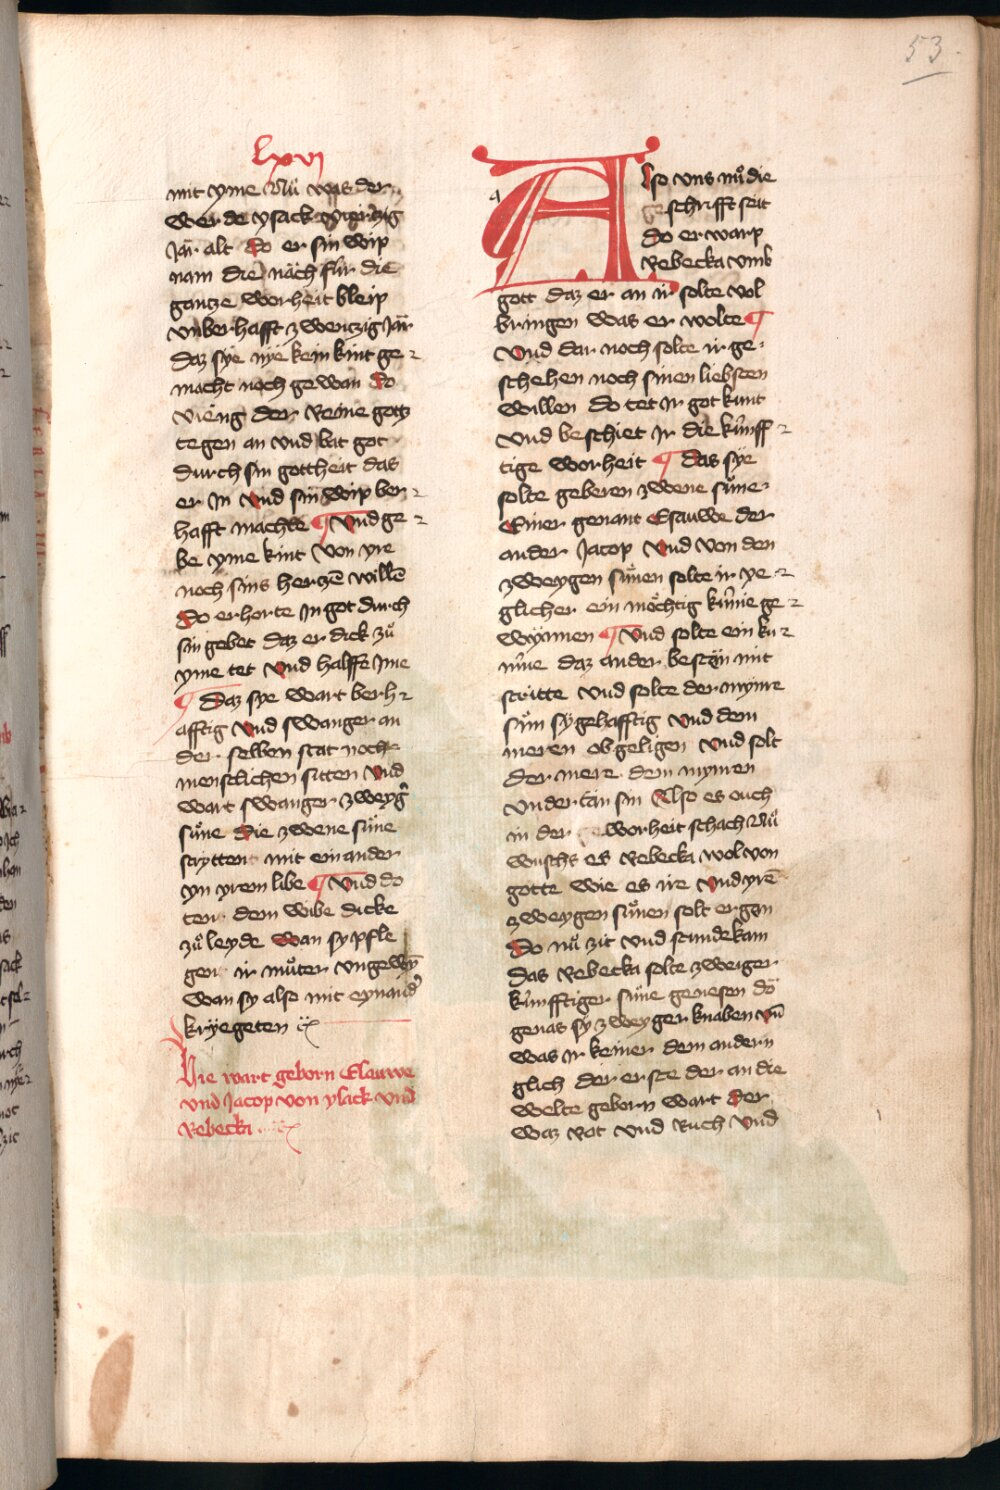 53
lxvi
mit yme Nuͦ was der
werde ysack viertzig
Jar alt do er sin wip
nam die nach fúr die
gantze worheit bleip
vnberhafft zwentzig Jar
daz sye nye kein kint ge
macht noch gewan do
vieng der Reine gottz
tegen an vnd bat got
durch sin gottheit das
er In vnd sin wip ber
hafft machte ¶ Vnd ge
be yme kint von yre
noch sins hertzē willē
do erhorte In got durch
sin gebet daz er dick zuͦ
yme tet vnd halffe Ime
¶ Daz sye wart berh
afftig vnd swanger an
der selben stat noch
menschlichen sitten vnd
wart swanger zweyg
suͤne die zwene suͤne
strytten mit ein ander
yn yrem libe ¶ Vnd do
ten dem wibe dicke
zuͦ leyde wan sy pfle
gen ir muͦter vngewyn
wan sy also mit eynand
kryegeten
Hie wart geborn Esauwe
vnd Jacop von ysack vnd
Rebecka
Also vns nuͦ die
geschrifft seit
do er warp
Rebecka vmb
gott daz er an ir solte vol
bringen was er wolte ¶
Vnd dar noch solte ir ge
schehen noch sinen liebsten
willen do tet Ir got kunt
vnd beschiet Ir die kúnff
tige worheit ¶ Das sye
solte geberen zwene suͤne
Einer genant Esauwe der
ander Jacop vnd von den
zweygen suͤnen solte ir ye
glicher ein moͤchtig kúnne ge
wynnen ¶ Vnd solte ein kú
nne daz ander bestan mit
stritte vnd solte der mynre
suͤn sygehafftig vnd dem
meren ob geligen vnd solt
der mere dem mynren
vndertan sin Also es ouch
in der worheit schach Nuͦ
wuschs es Rebecka wol von
gotte wie es ire vnd yrē
zweygen suͤnen solt ergan
Do nuͦ zit vnd stunde kam
das Rebecka solte zweiger
kúnfftiger suͤne genesen do
genas sy zweyger knaben vn̄
was Ir keiner dem andern
glich der erste der an die
welte geborn wart der
waz Rot vnd Ruch vnd